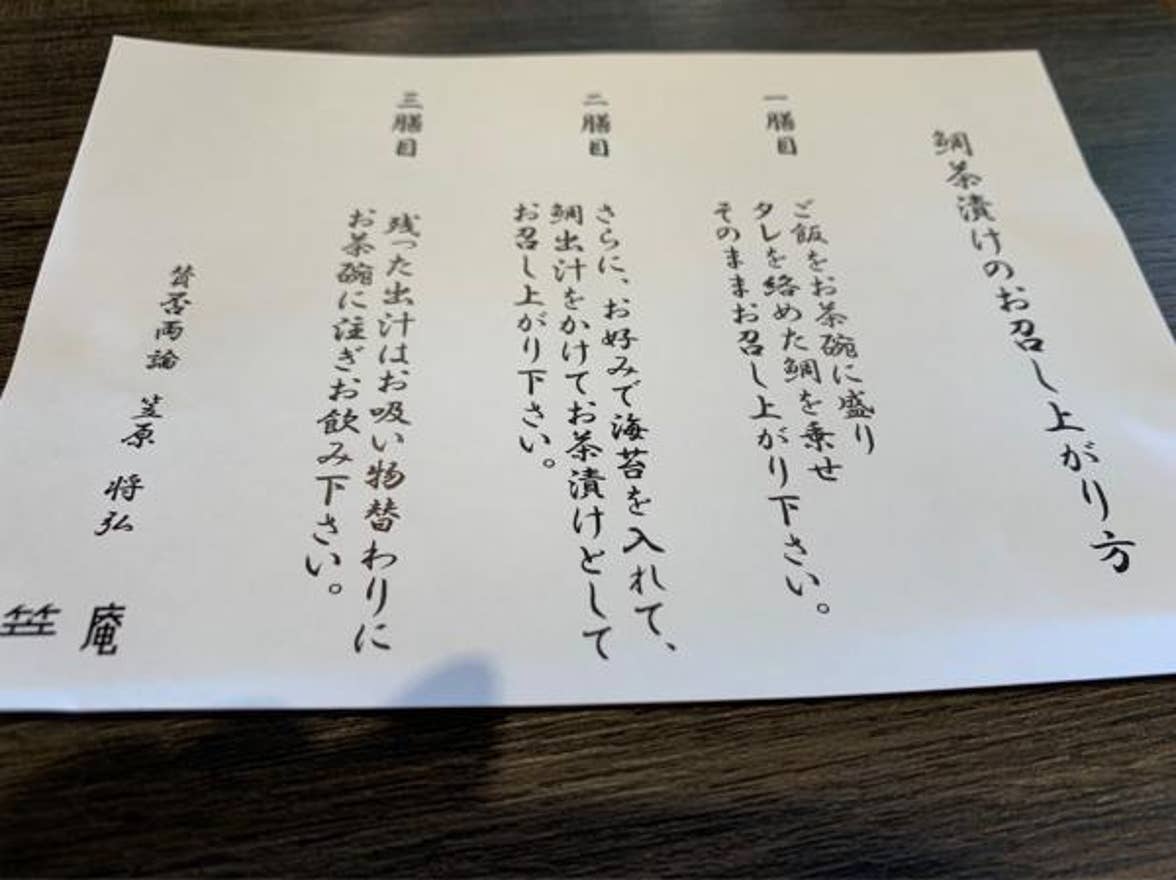 鯛茶漬けのお召し上がり方
一膳目
ご飯をお茶碗に盛り
タレを絡めた鯛を乗せ
そのままお召し上がり下さい。
二膳目
さらに、お好みで海苔を入れて、
鯛出汁をかけてお茶漬けとして
お召し上がり下さい。
三膳目
残った出汁はお吸い物替わりに
お茶碗に注ぎお飲み下さい。
賛否両論 笠原 将弘
笠庵